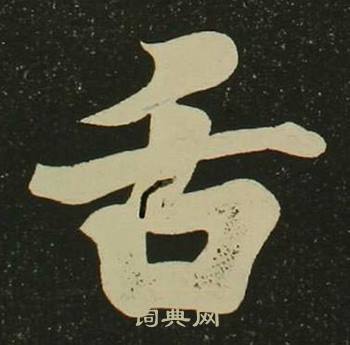 舌
词典网